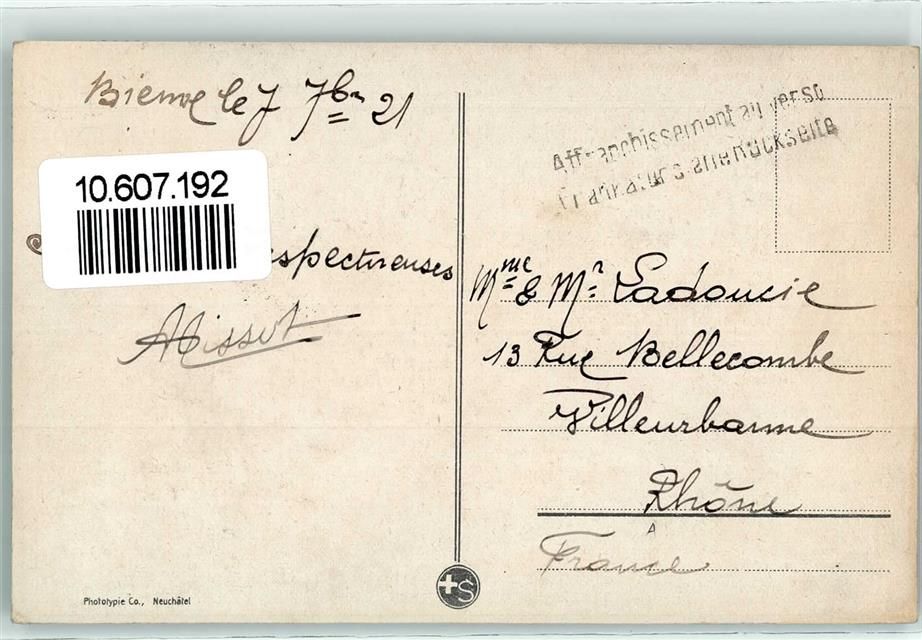 Bienne le 7 7bre 21
10.607.192
espectueuses
AMissot
Affranchissement au verso
Frankatur s. alte Rückseite
Mme & Mr Ladoucie
13 Rue Bellecombe
Villeurbanne
Rhône
France
Phototypie Co., Neuchâtel
S